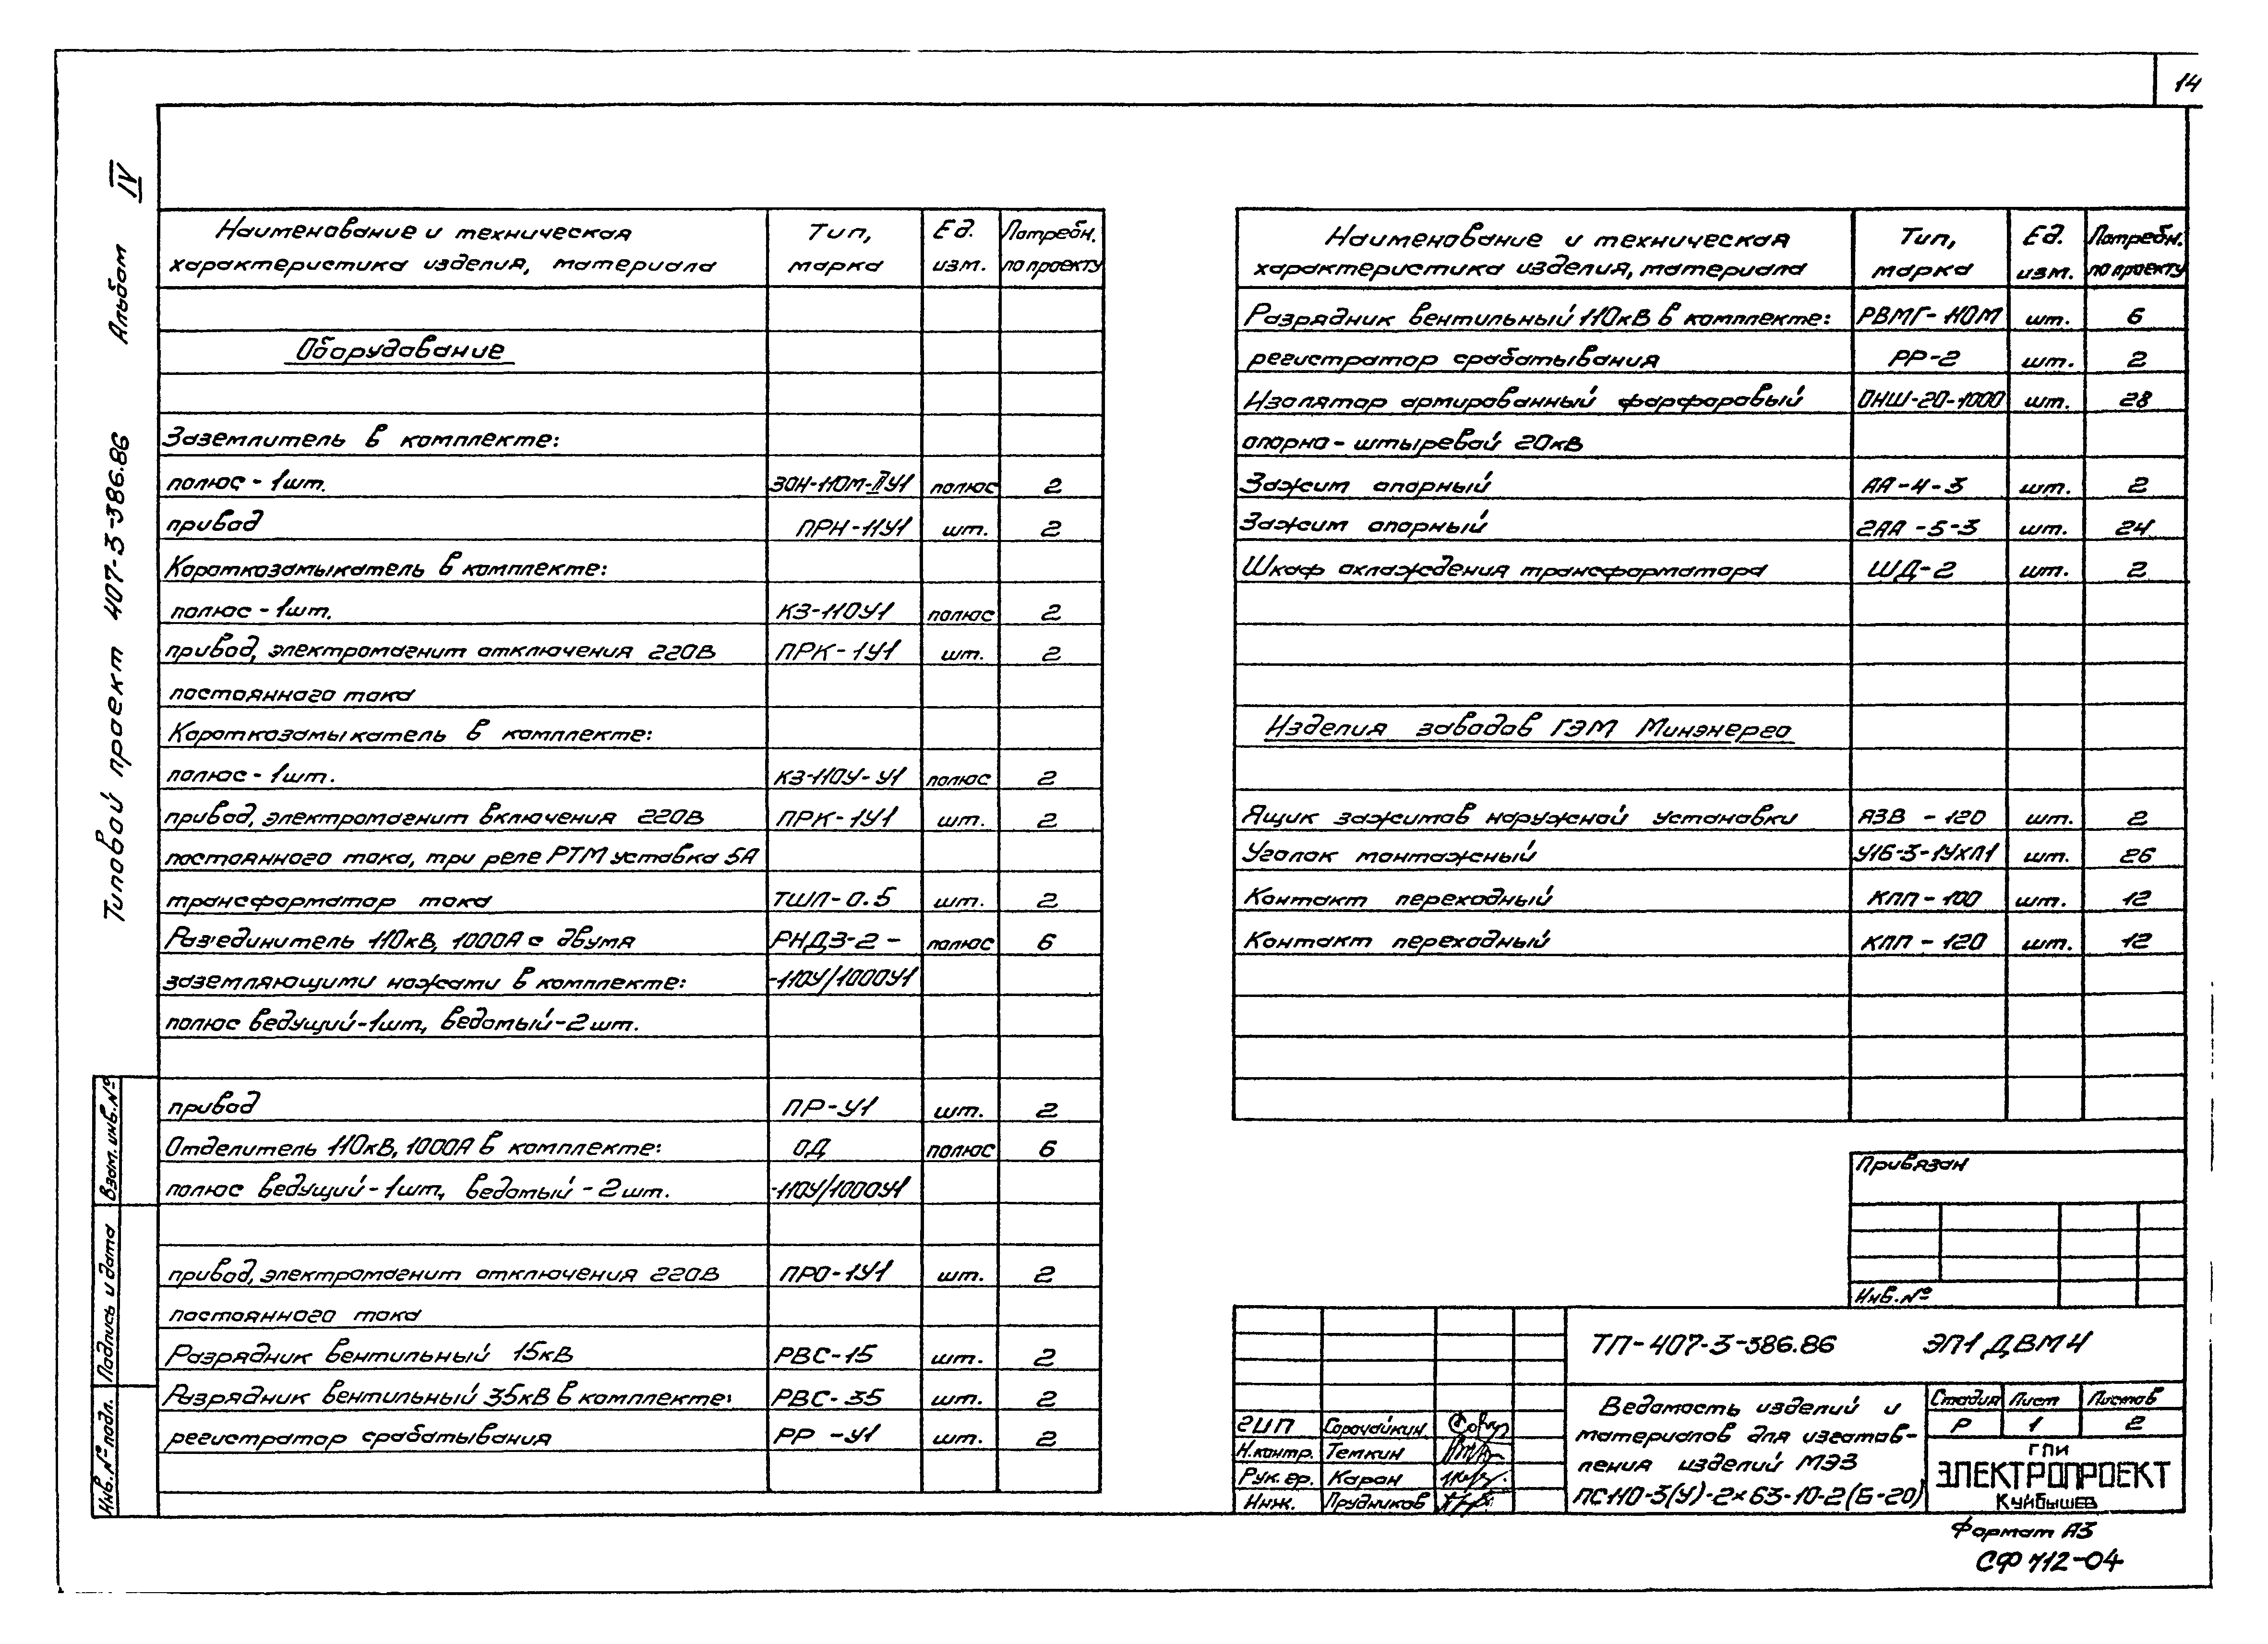 14
Типовой проект 407-3-386.86 Альбом IV
Наименование и техническая характеристика изделия, материала | Тип, марка | Ед. изм. | Потребн. по проекту
Оборудование
Заземлитель в комплекте:
полюс - 1шт. ЗОН-110М-IIУ1 полюс 2
привод ПРН-11У1 шт. 2
Короткозамыкатель в комплекте:
полюс - 1шт. КЗ-110У1 полюс 2
привод, электромагнит отключения 220В ПРК-1У1 шт. 2
постоянного тока
Короткозамыкатель в комплекте:
полюс - 1шт. КЗ-110У-У1 полюс 2
привод, электромагнит включения 220В ПРК-1У1 шт. 2
постоянного тока, три реле РТМ уставка 5А
трансформатор тока ТШЛ-0.5 шт. 2
Раз'единитель 110кВ, 1000А с двумя РНДЗ-2- полюс 6
заземляющими ножами в комплекте: -110У/1000У1
полюс ведущий-1шт, ведомый-2шт.
привод ПР-У1 шт. 2
Отделитель 110кВ, 1000А в комплекте: ОД полюс 6
полюс ведущий-1шт, ведомый-2шт. -110У/1000У1
привод, электромагнит отключения 220В ПРО-1У1 шт. 2
постоянного тока
Разрядник вентильный 15кВ РВС-15 шт. 2
Разрядник вентильный 35кВ в комплекте: РВС-35 шт. 2
регистратор срабатывания РР-У1 шт. 2
Наименование и техническая характеристика изделия, материала | Тип, марка | Ед. изм. | Потребн. по проекту
Разрядник вентильный 110кВ в комплекте: РВМГ-110М шт. 6
регистратор срабатывания РР-2 шт. 2
Изолятор армированный фарфоровый ОНШ-20-1000 шт. 28
опорно-штыревой 20кВ
Зажим опорный АА-4-3 шт. 2
Зажим опорный 2АА-5-3 шт. 24
Шкаф охлаждения трансформатора ШД-2 шт. 2
Изделия заводов ГЭМ Минэнерго
Ящик зажимов наружной установки ЯЗВ-120 шт. 2
Уголок монтажный У16-3-1УХЛ1 шт. 26
Контакт переходный КПП-100 шт. 12
Контакт переходный КПП-120 шт. 12
Привязан
Инв. №
ТП-407-3-386.86 ЭП1 ДВМ4
Ведомость изделий и
материалов для изготов-
ления изделий МЭЗ
ПС110-3(У)-2×63-10-2(Б-20)
Стадия Лист Листов
Р 1 2
ГПИ
ЭЛЕКТРОПРОЕКТ
Куйбышев
ГИП Сорочайкин
Н.контр. Темкин
Рук. гр. Каран
Инж. Прудников
Взам. инв. №
Подпись и дата
Инв. № подл.
Формат А3
СФ 712-04